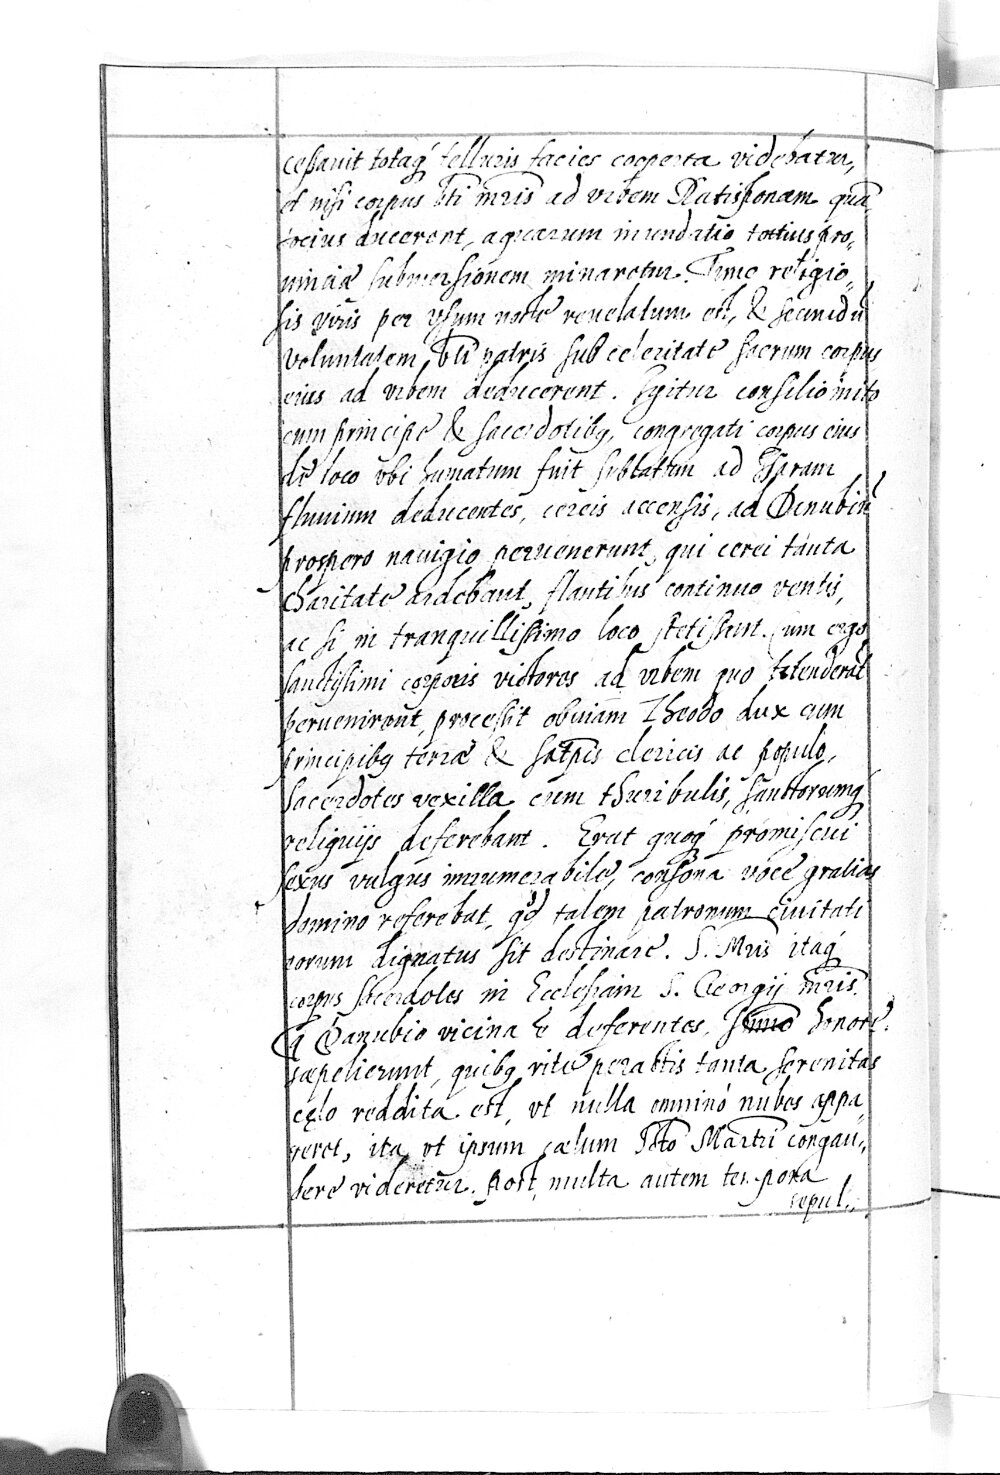 ceßavit totaq́ telluris facies cooperta videbatur,
et nisi corpus bti mris ad vrbem Ratisponam qua„
tocius ducerent, aquarum inundatio totius pro„
vinciæ submersionem minaretur. Tunc religio„
sis viris per visum nocte reuelatum est, & secundū
voluntatem bti patris sub celeritate sacrum corpus
eius ad vrbem deducerent. Igitur consilio inito
cum principe & sacerdotibq, congregati corpus eius
de loco vbi humatum fuit sublatum ad Isaram
fluvium deducentes, cereis accensis, ad Danubiū
prospero nauigio peruenerunt, qui cerei tanta
charitate ardebant, flantibus continuo ventis,
ac si in tranquillissimo loco stetissent. Cum ergo
sanctissimi corporis vectores ad vrbem quo tetenderāt
peruenirent, processit obuiam Theodo dux cum
principibq terræ & satpis clericis ac populo,
sacerdotes vexilla cum thuribulis, sanctorumq́
reliquijs deferebant. Erat quoq́ promiscui
sexus vulgus innumerabile, consona voce gratias
domino referebat, qd talem patronum ciuitati
eorum dignatus sit destinare. S. Mris itaq́
corpus sacerdotes in Ecclesiam S. Georgij mris
q Danubio vicina ē deferentes, summo honore
sæpelierunt, quibq rite peractis tanta serenitas
cęlo reddita est, vt nulla omninó nubes appa„
reret, ita vt ipsum cælum Scto Martri congau„
dere videretur. Post multa autem tempora
sepul„